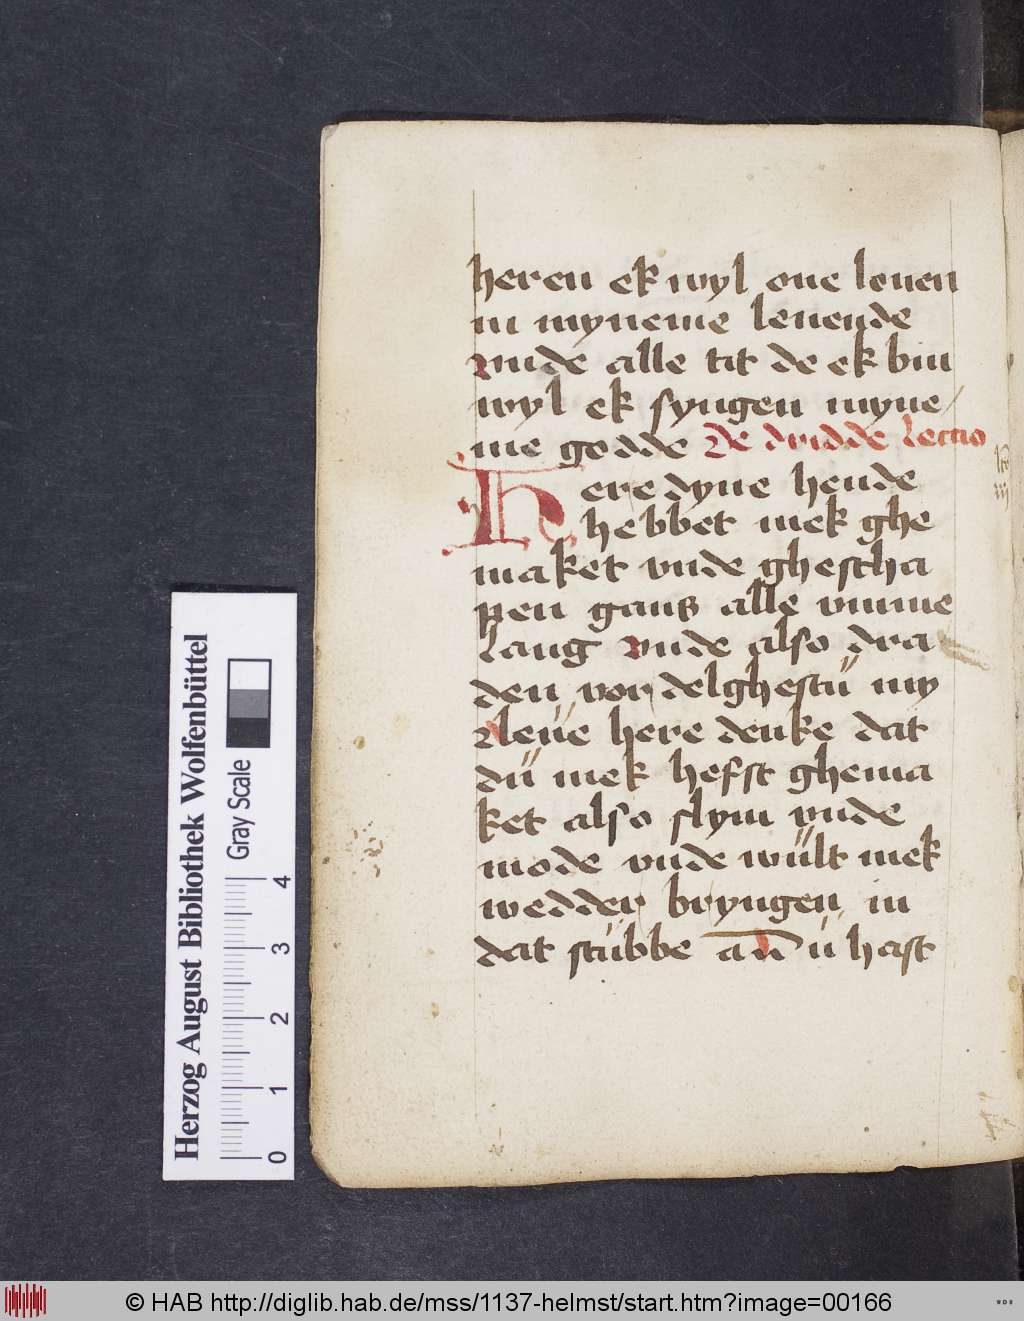 heren ek wyl one louen
in myneme leuende
vnde alle tit de ek bin
wyl ek syngen myne/
me godde De dridde lectio
Here dyne hende
hebbet mek ghe
maket vnde ghescha
pen gantz alle vmme
lang vnde also dra
den vor delghestu my
leue here denke dat
dü mek hefst ghema
ket also slym vnde
mode vnde wült mek
wedder bryngen in
dat stübbe ann ü hast
Herzog August Bibliothek Wolfenbüttel
Gray Scale
0 1 2 3 4
© HAB http://diglib.hab.de/mss/1137-helmst/start.htm?image=00166